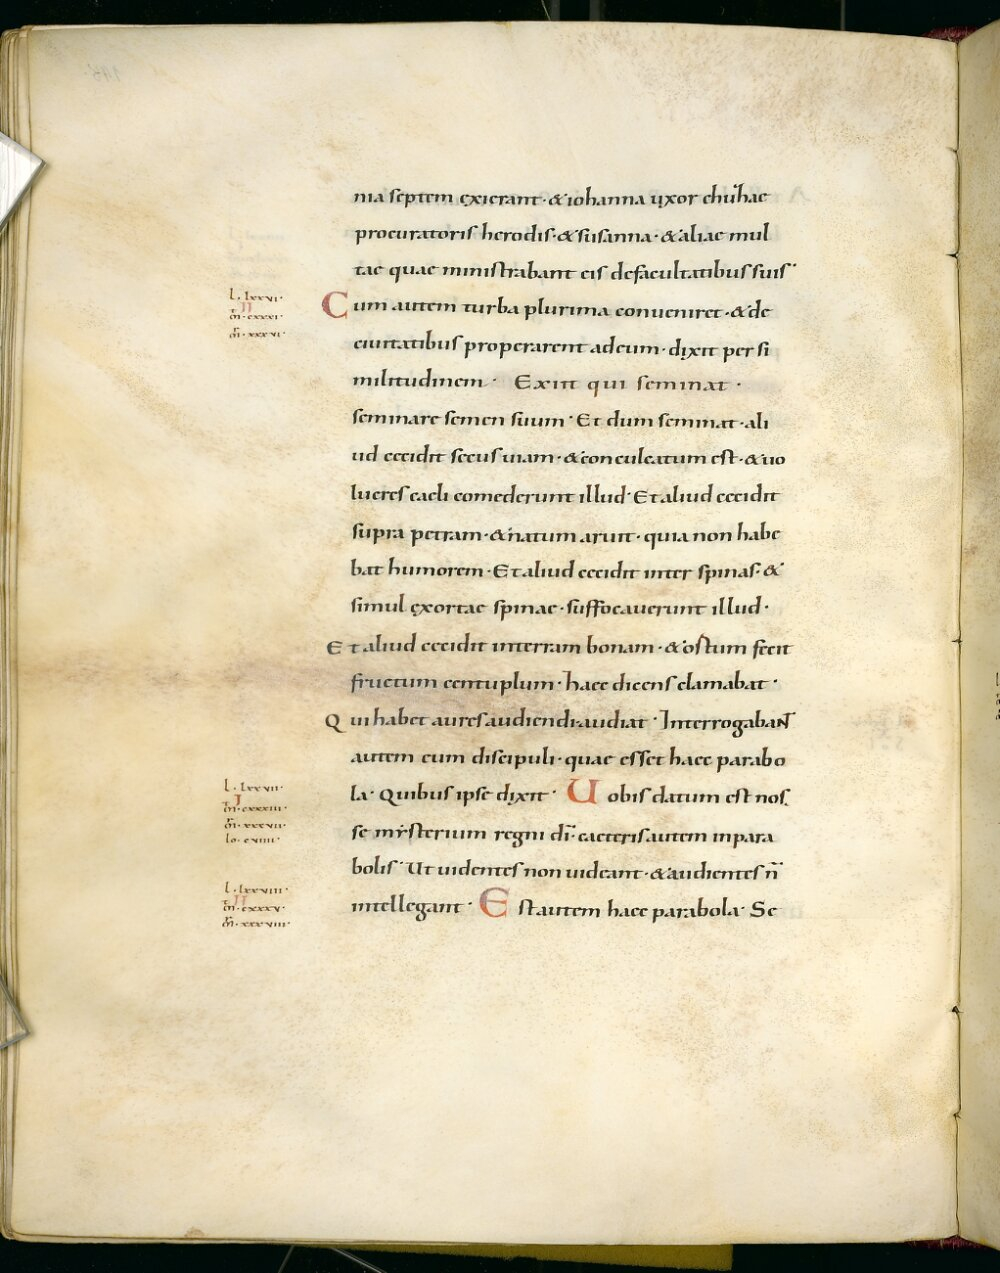 nia septem exierant· & iohanna uxor chuhae
procuratoris herodis· & susanna· & aliae mul
tae quae ministrabant eis de facultatibus suis·
l· lxxvi·
II
m̄· cxxxi·
m̄r· xxxvi·
Cum autem turba plurima conueniret· & de
ciuitatibus properarent ad eum· dixit per si
militudinem· Exiit qui seminat·
seminare semen suum· Et dum seminat· ali
ud cecidit secus uiam· & conculcatum est· & uo
lucres caeli comederunt illud· Et aliud cecidit
supra petram· & natum aruit· quia non habe
bat humorem· Et aliud cecidit inter spinas· &
simul exortae spinae· suffocauerunt illud·
Et aliud cecidit in terram bonam· & ostum fecit
fructum centuplum· haec dicens clamabat·
Qui habet aures audiendi audiat· Interrogabant
autem eum discipuli· quae esset haec parabo
l· lxxvii·
I
m̄· cxxxiii·
m̄r· xxxvii·
Io· cviiii·
la· Quibus ipse dixit· Uobis datum est nos
se mysterium regni dī· caeteris autem in para
bolis· Ut uidentes non uideant· & audientes n̄
l· lxxviii·
II
m̄· cxxxv·
m̄r· xxxviii·
intellegant· Est autem haec parabola· Se